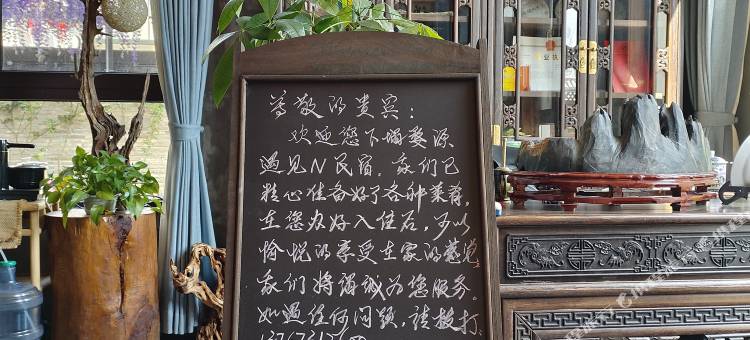 尊敬的贵宾：
欢迎您下榻婺源
遇见N民宿。我们已
精心准备好了各种菜肴，
在您办好入住后，可以
愉悦的享受在家的感觉
我们将谒诚为您服务。
如遇任何问题，请拨打